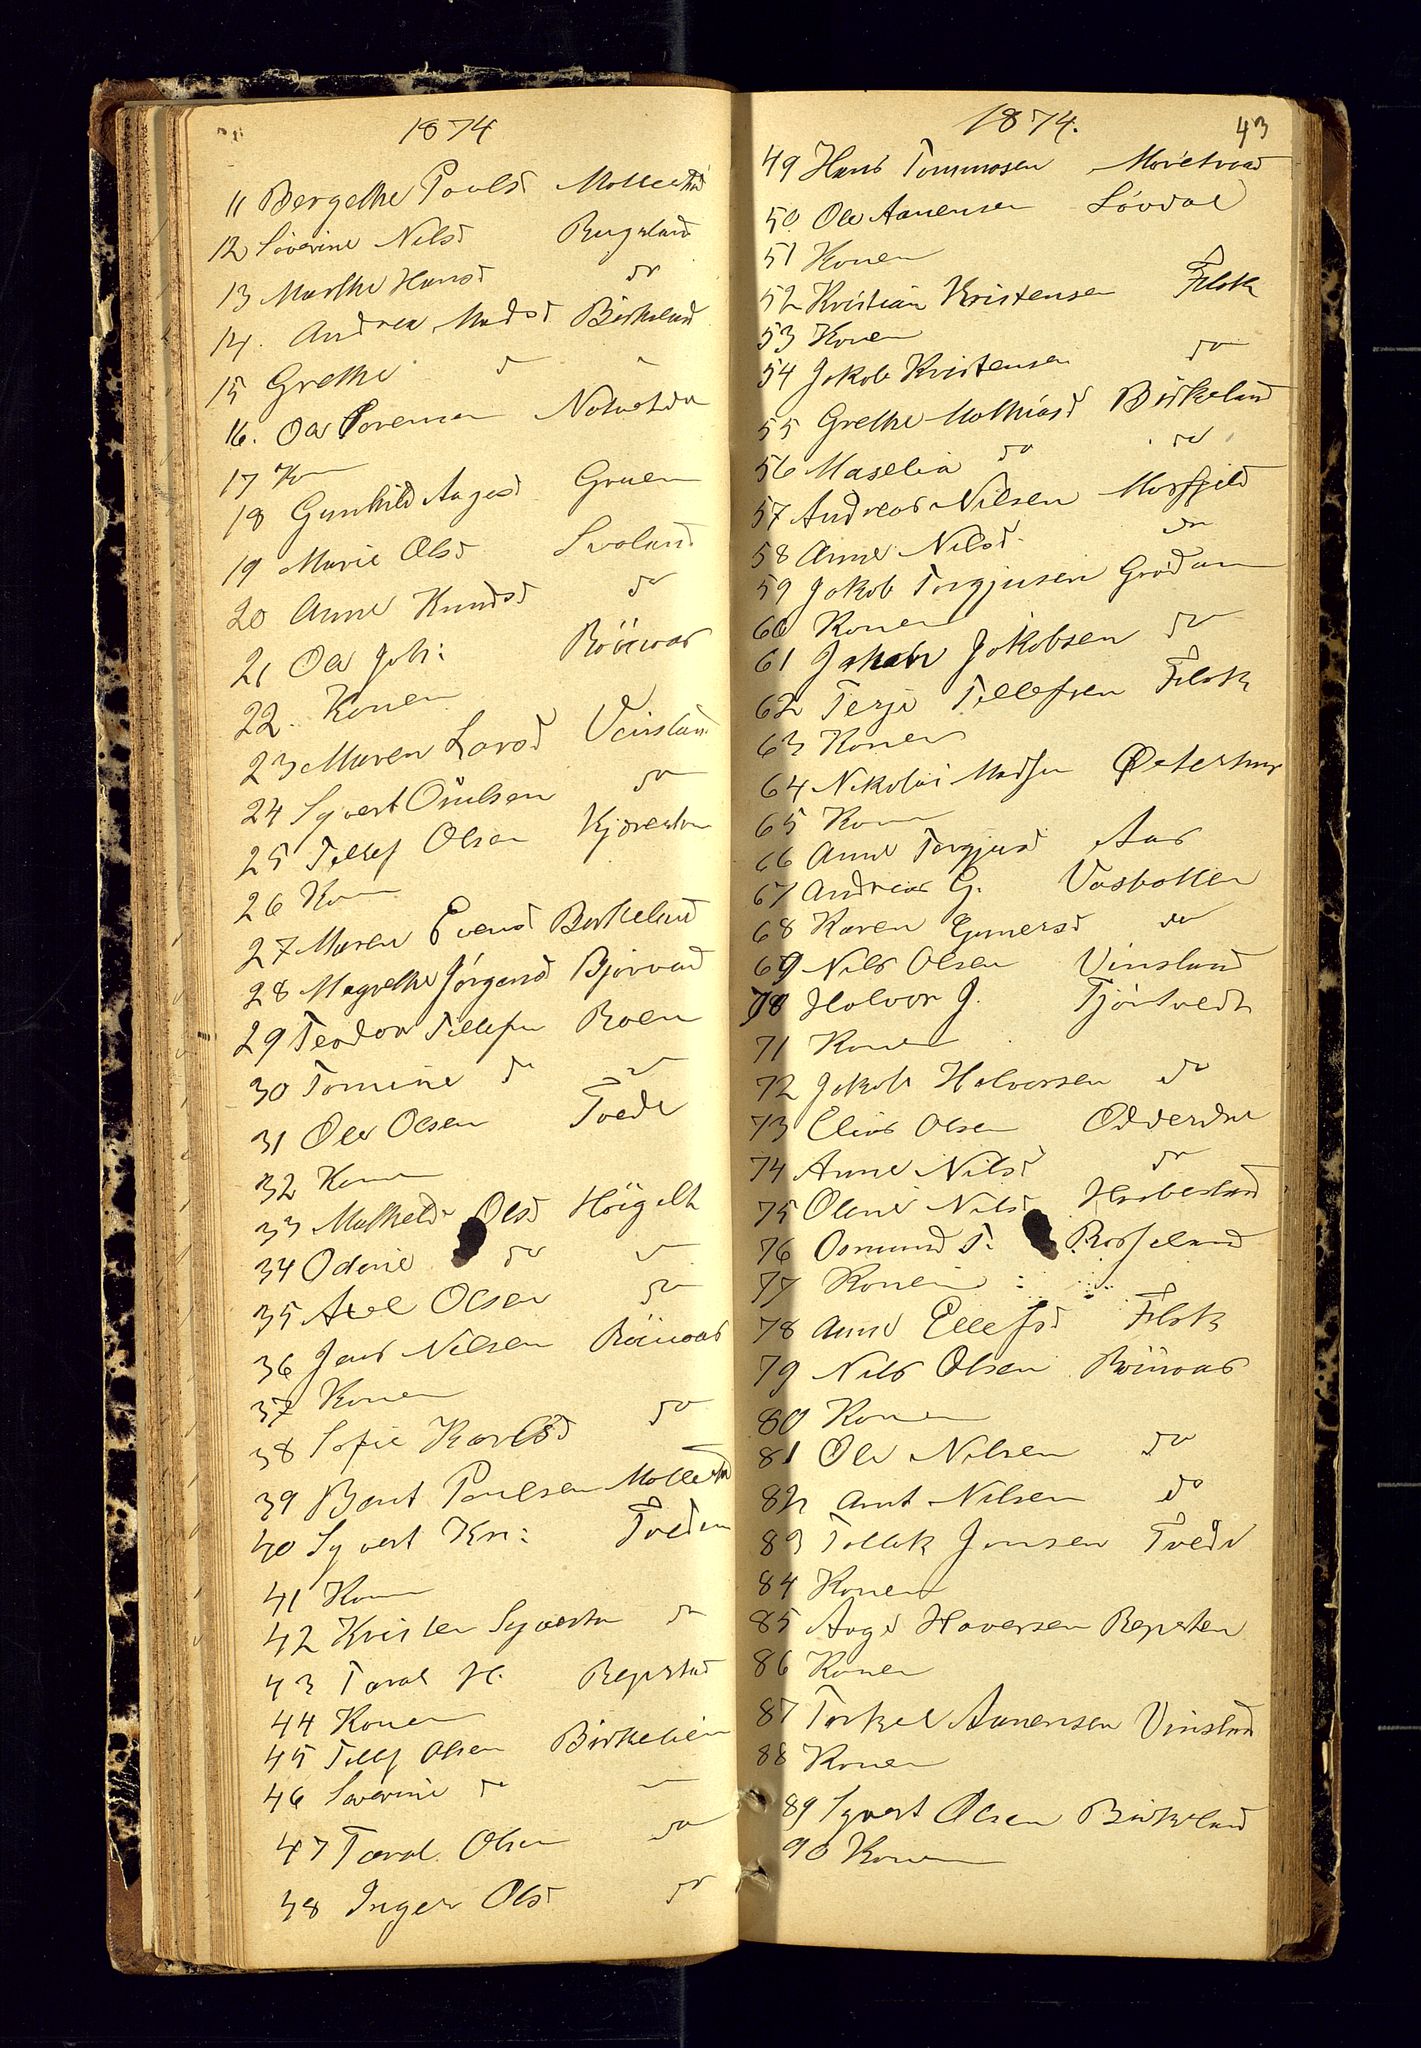 1874
11 Bergethe Poulsd Mollestad
12 Severine Nilsd Bugeland
13 Marthe Hansd do
14. Andrea Madsd Birkeland
15 Grethe d
16. Ole Sorensen
17 K
18 Gunhild Aagesd Gruen
19 Marie Olsd Svaland
20 Anne Knudsd do
21 Ole Joh: Röinaas
22 Konen
23 Maren Larsd Veinsland
24 Syvert Omelsen do
25 Tellef Olsen
26 Kon
27 Maren Evensd Birkeland
28 Magrethe Jörgensd Bjorvad
29 Teodor Tellefsen Roen
30 Tomine do
31 Ole Olsen Tvede
32 Kon
33 Mathilde Olsd Höigilt
34 Odine do
35 Axel Olsen do
36 Jens Nilsen Röinaas
37 Konen
38 Sofie Karlsd do
39 Bent Poulsen Mollestad
40 Syvert Kri: Tveden
41 Kon
42 Kristen Syverts do
43 Taral H. Repstad
44 Konen
45 Tellef Olsen Birkelien
46 Severine do
47 Taral Olsen do
48 Inger Olsd do
1874. 43
49 Hans Tommasen
50 Ole Aanensen Lövdal
51 Konen
52 Kristian Kristensen Flak
53 Konen
54 Jakob Kristensen do
55 Grethe Mathiasd Birkeland
56 Maselia do do
57 Andreas Nilsen Morfjeld
58 Anne Nilsd do
59 Jakob Torgjusen
60 Konen
61 Jakob Jakobsen do
62 Terje Tellefsen Flak
63 Konen
64 Nikolai Madsen Østerhus
65 Kon
66 Anne Torgjusd Aas
67 Andreas G. Vasbotten
68 Karen Gunersd do
69 Nils Olsen Vinsland
70 Halvor J. Tjöstvedt
71 Konen
72 Jakob Halvorsen do
73 Elias Olsen Odderdne
74 Anne Nilsd do
75 Oline Nilsd Hrobestad
76 Osmund T. Rosseland
77 Konen
78 Anne Ellefsd Flak
79 Nils Olsen Röinaas
80 Konen
81 Ole Nilsen do
82 Arnt Nilsen do
83 Tollak Jonsen Tvede
84 Konen
85 Aage Haversen Repsten
86 Konen
87 Torkel Aanensen Vinsland
88 Konen
89 Syvert Olsen Birkeland
90 Konen